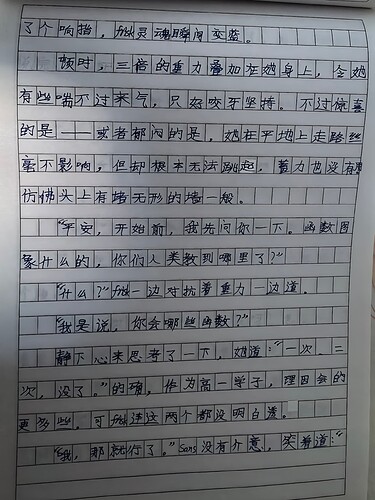 了个响指，她灵魂瞬间变蓝。
顿时，三倍的重力叠加在她身上，令她
有些喘不过来气，只好咬牙坚持。不过惊喜
的是——或者郁闷的是，她在平地上走路丝
毫不影响，但却根本无法跳起，蓄力也没有用
仿佛头上有堵无形的墙一般。
“平安，开始前，我先问你一下。函数图
象什么的，你们人类教到哪里了？”
“什么？”她一边对抗着重力一边道。
“我是说，你会哪些函数？”
静下心来思考了一下，她道：“一次，二
次，没了。”的确，作为高一学子，理因会的
更多些，可她连这两个都没明白透。
“我，那就行了。”Sans没有介意，笑着道：“